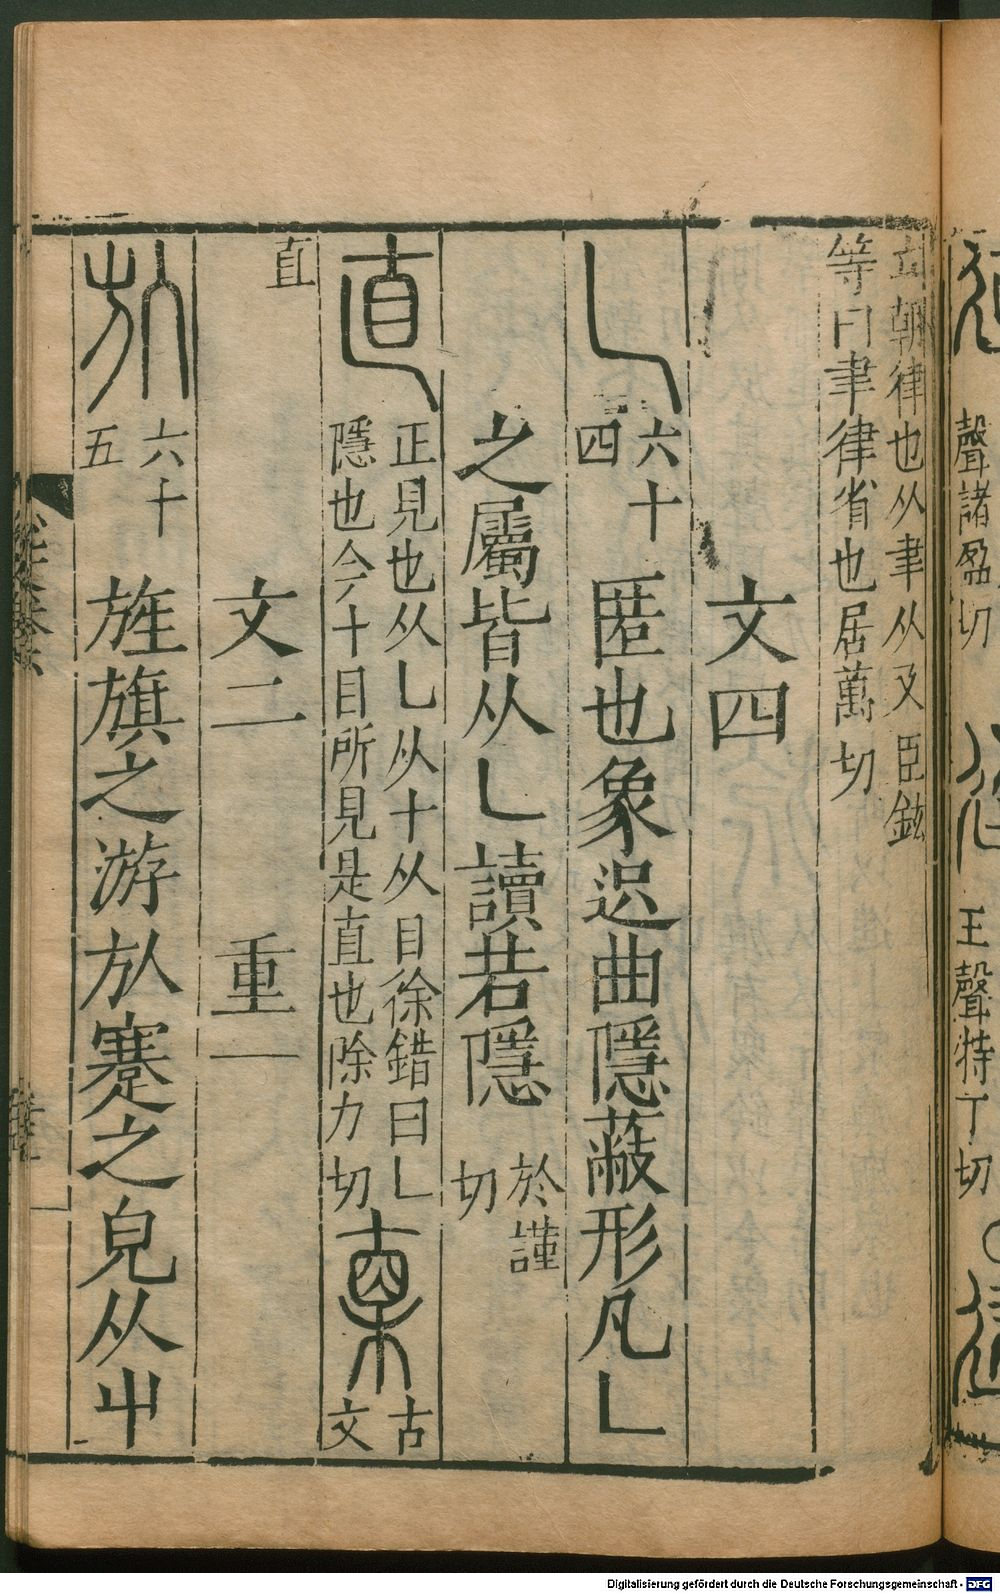 立朝律也从聿从又臣鉉
等曰聿律省也居萬切
文四
𠃊
六十
四
匿也象迟曲隱蔽形凡𠃊
之屬皆从𠃊讀若隱
於謹
切
直
正見也从𠃊从十从目徐鍇曰𠃊
隱也今十目所見是直也除力切
𣖴
古
文
直
文二 重一
㫃
六十
五
旌旗之游㫃蹇之皃从屮
聲諸盈切
王聲特丁切
Digitalisierung gefördert durch die Deutsche Forschungsgemeinschaft - DFG